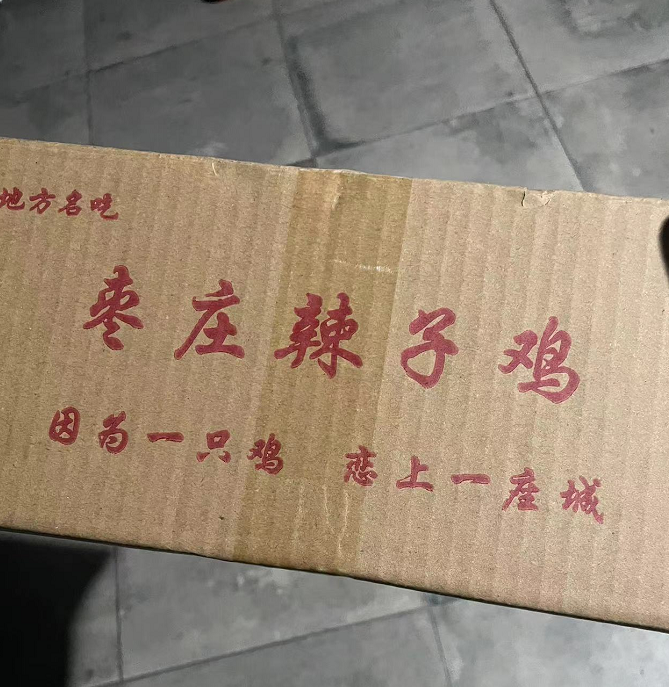 地方名吃
枣庄辣子鸡
因为一只鸡 恋上一座城